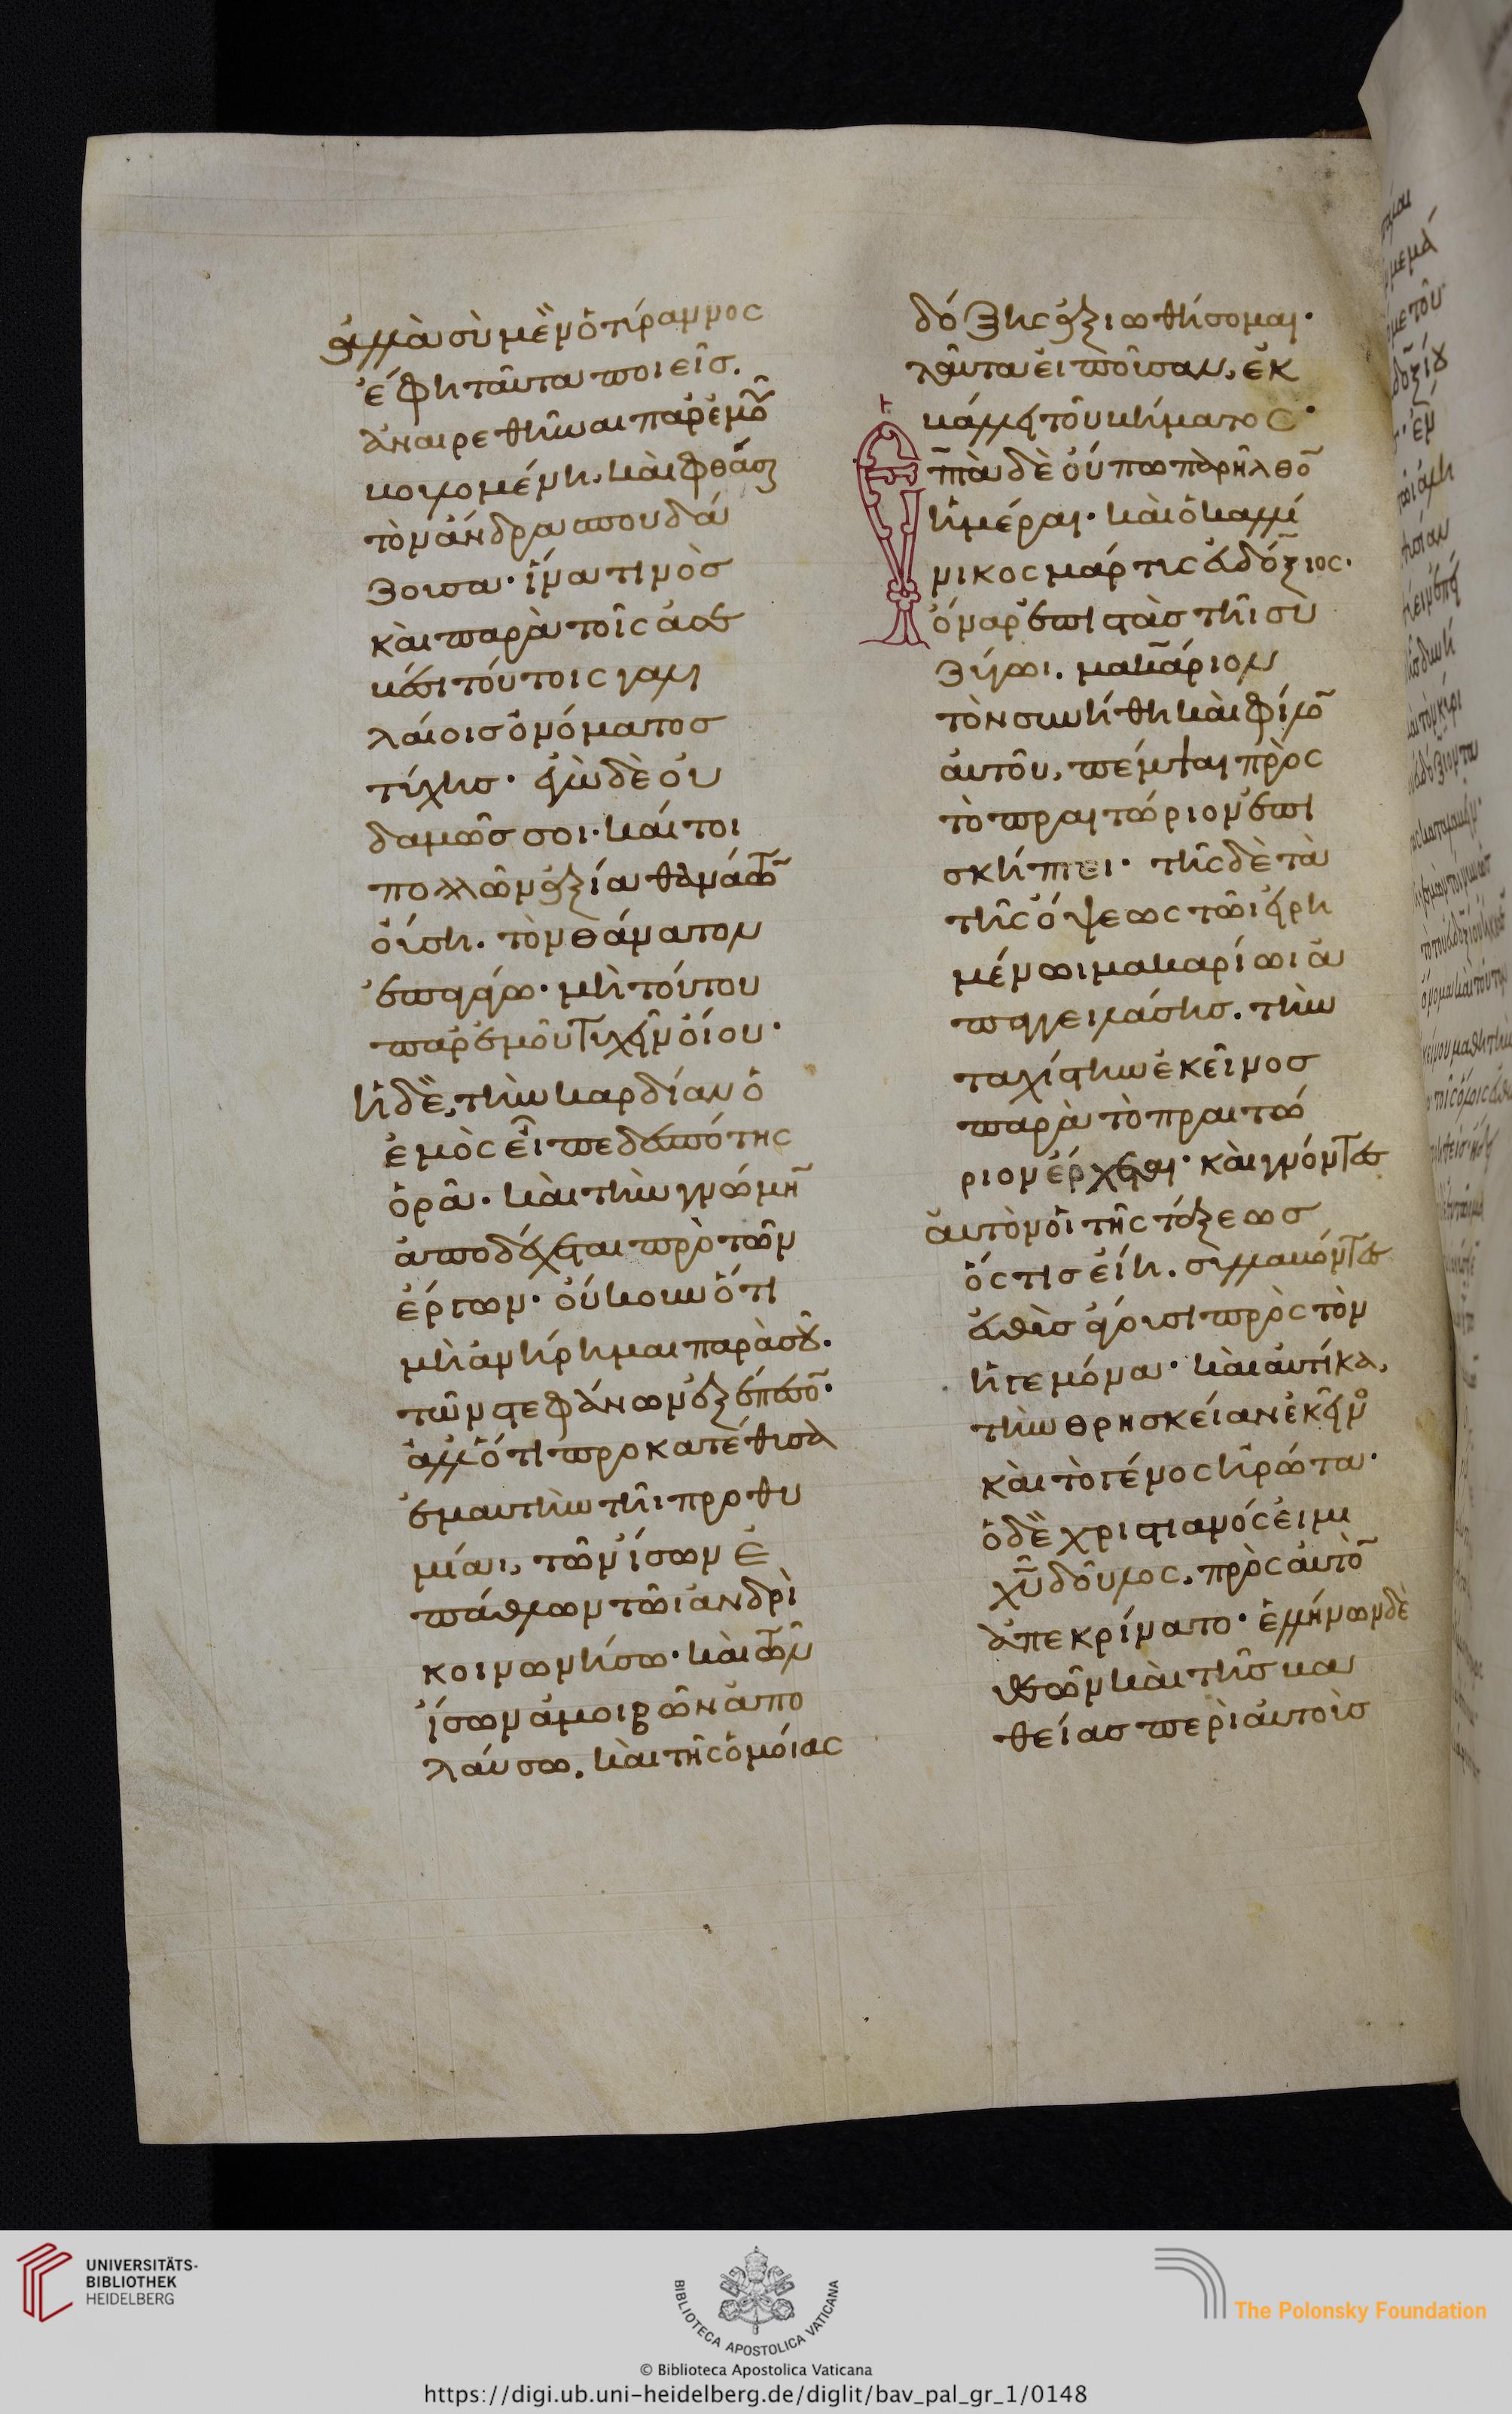 ἀλλὰ σὺ μὲν ὁ τύραννος
ἔφη ταῦτα ποιεῖσ.
ἀναιρεθῆναι παρ' ἐμοῦ
κοινομένη, καὶ φθάσαι
τὸν ἄνδρα σπουδά
ζουσα· ἵνα τινὸσ
καὶ παρὰ τοῖς ἀσε
κάσι τούτοις
λάοισ ὀνόματοσ
τύχησ· ἐγὼ δὲ οὐ
δαμῶσ σοι· καίτοι
πολλῶν ἀξία θανάτων
οὔση. τὸν θάνατον
ἐπαγάγω· μὴ τούτου
παρ' ἐμοῦ τυχεῖν οἴου·
ἡ δὲ, τὴν καρδίαν ὁ
ἐμὸς εἶπε δεσπότης
ὁρᾶ· καὶ τὴν γνώμην
ἀποδέχεται πρὸ τῶν
ἔργων· οὐκοῦν ὅτι
μὴ ἀνήρημαι παρὰ σοῦ.
τῶν στεφάνων ἐξέπεσον·
ἀλλ' ὅτι προκατέθυσα
ἐμαυτὴν τῆι προθυ
μίαι, τῶν ἴσων ἐ
πάθλων τῶι ἀνδρὶ
κοινωνήσω· καὶ τῶν
ἴσων ἀμοιβῶν ἀπο
λαύσω. καὶ τῆς ὁμοίας
δόξης ἀξιωθήσομαι·
ταῦτα εἰποῦσαν, ἐκ
κάλλει τοῦ κτήματος·
Ἑπτὰ δὲ οὔπω παρῆλθον
ἡμέραι· καὶ ὁ καλλί
νικος μάρτυς ἀδόξιος.
ὄναρ ἐπιστὰσ τῆι συ
ζύγωι. μακάριον
τὸν συνήθη καὶ φίλον
αὐτοῦ, πέμψαι πρὸς
τὸ πραιτώριον ἐπι
σκήπτει· τῆς δὲ τὰ
τῆς ὄψεως τῶι εἰρη
μένωι μακαρίωι ἀ
παγγειλάσησ. τὴν
ταχίστην ἐκεῖνοσ
παρὰ τὸ πραιτώ
ριον ἔρχεται· καὶ γνόντεσ
αὐτὸν οἱ τῆς τάξεωσ
ὅςτισ εἴη. συλλαβόντεσ
εὐθὺσ ἄγουσι πρὸς τὸν
ἡγεμόνα· καὶ αὐτίκα,
τὴν θρησκείαν ἐκεῖνον
καὶ τὸ γένος ἠρώτα·
ὁ δὲ χριστιανός εἰμι
χῦ δοῦλος, πρὸς αὐτὸν
ἀπεκρίνατο· ἑλλήνων δὲ
θεῶν καὶ τῆσ κα
θείασ περὶ αὐτοὺσ
UNIVERSITÄTS-
BIBLIOTHEK
HEIDELBERG
BIBLIOTECA APOSTOLICA VATICANA
The Polonsky Foundation
© Biblioteca Apostolica Vaticana
https://digi.ub.uni-heidelberg.de/diglit/bav_pal_gr_1/0148